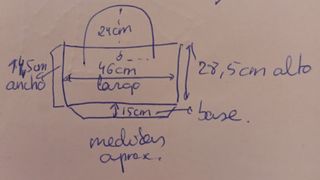 24cm
14,5cm
ancho
46cm
largo
28,5cm alto
15cm
base.
medidas
aprox.